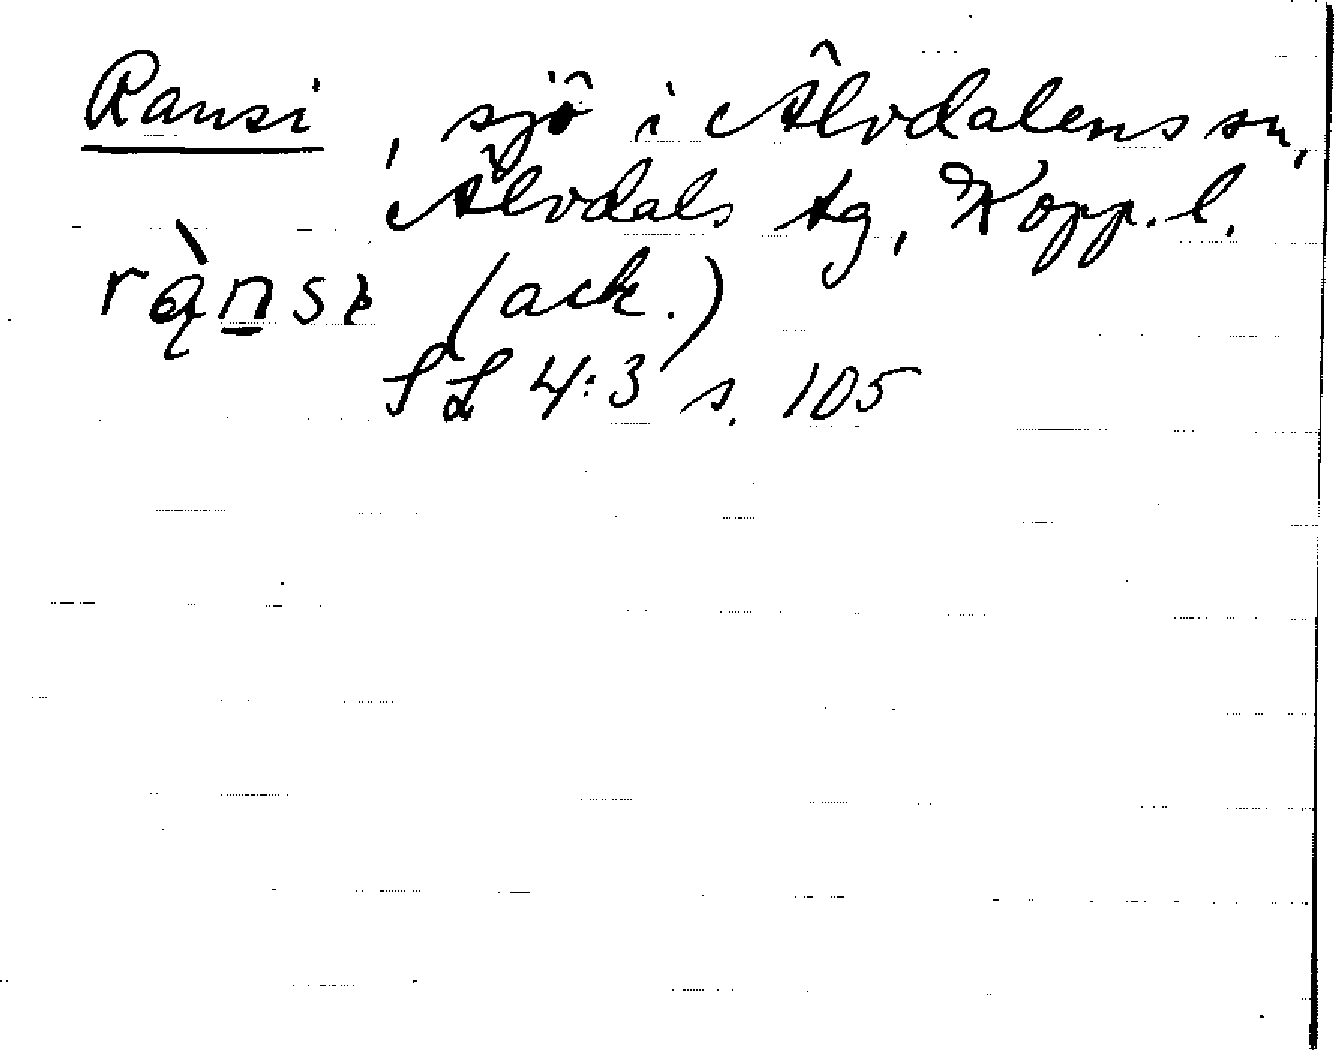 Ransi, sjö i Älvdalens sn,
Älvdals tg, Kopp. l.
rą̀n̲sɩ (ack.)
SL 4:3 s. 105